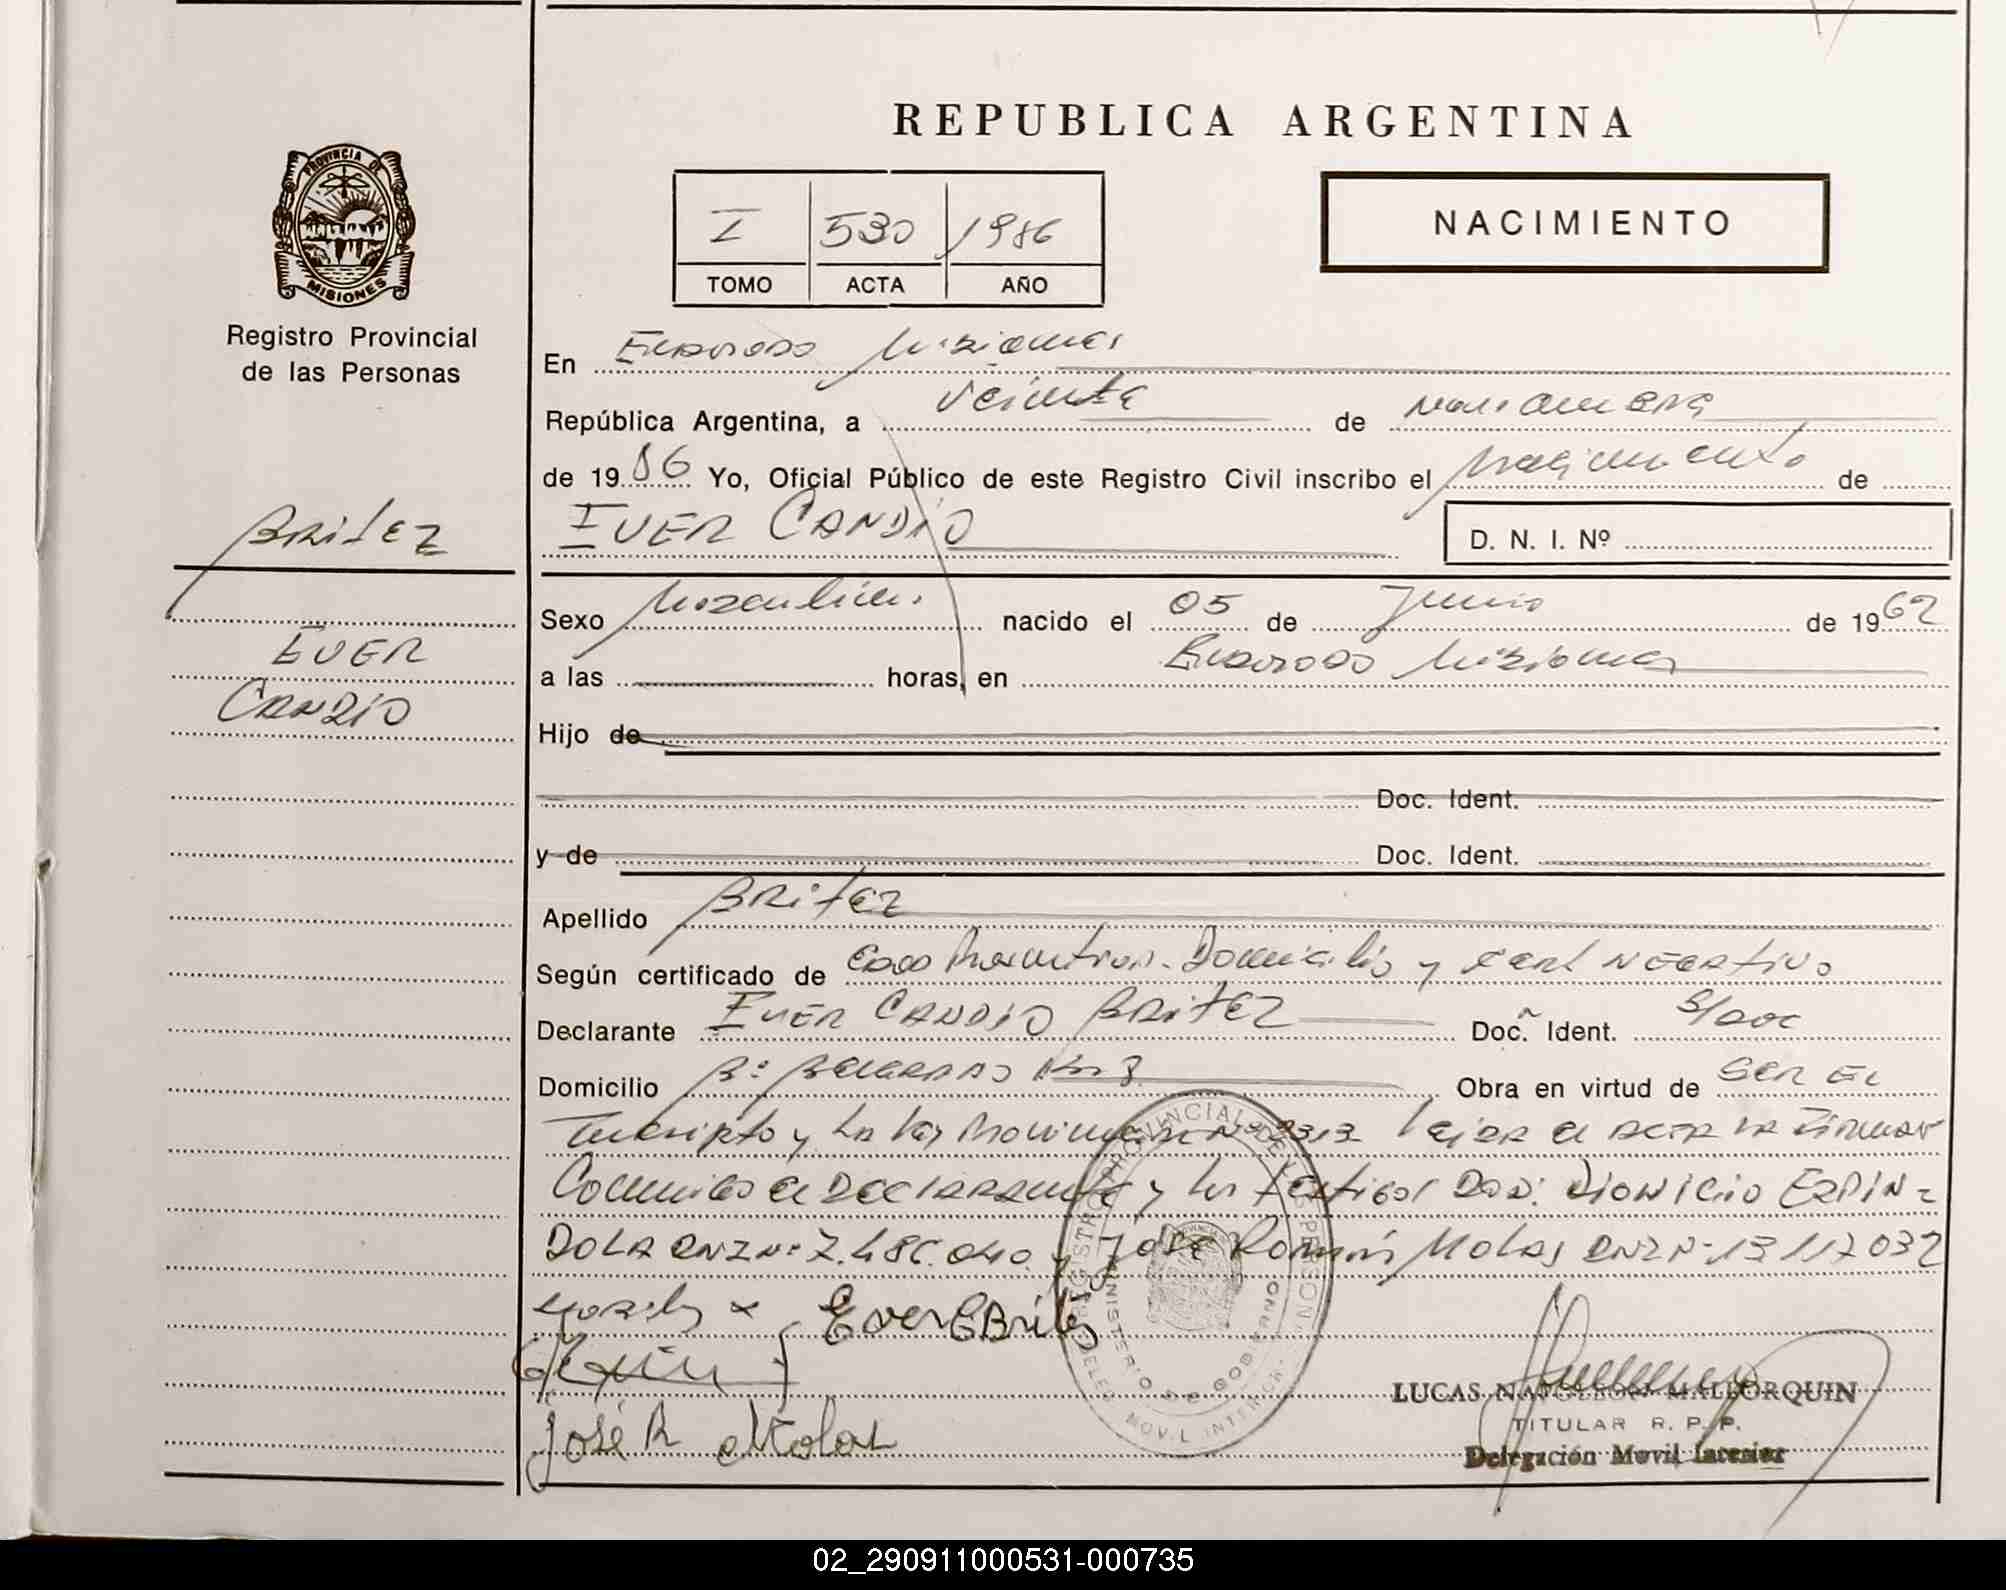 REPUBLICA ARGENTINA
PROVINCIA DE
MISIONES
Registro Provincial
de las Personas
I 530 1986
TOMO ACTA AÑO
NACIMIENTO
En Eldorado Misiones
República Argentina, a veinte de
de 1986 Yo, Oficial Público de este Registro Civil inscribo el nacimiento de
EVER CANDIO
D. N. I. Nº
BRITEZ
EVER
CANDIO
Sexo Masculino nacido el 05 de Junio de 1962
a las horas, en Eldorado Misiones
Hijo de
Doc. Ident.
y de Doc. Ident.
Apellido BRITEZ
Según certificado de Domicilio y cert NEGATIVO
Declarante EVER CANDIO BRITEZ Doc. Ident. S/DOC
Domicilio Bº BELGRANO Km 3 Obra en virtud de SER EL
Inscripto y La Ley Provincial Nº el ACTA LA Firman
Conmigo el DECLARANTE y Los Testigos DON: DIONICIO ESPIN-
DOLA DNI Nº 7.486.040 y José Román Molas DNI Nº 13 117 032
Ever C Britez
José R Molas
REGISTRO PROVINCIAL DE LAS PERSONAS
MINISTERIO DE GOBIERNO
MOVIL INTERIOR
LUCAS NAPOLEON MALLORQUIN
TITULAR R. P. P.
Delegación Movil Interior
02_290911000531-000735